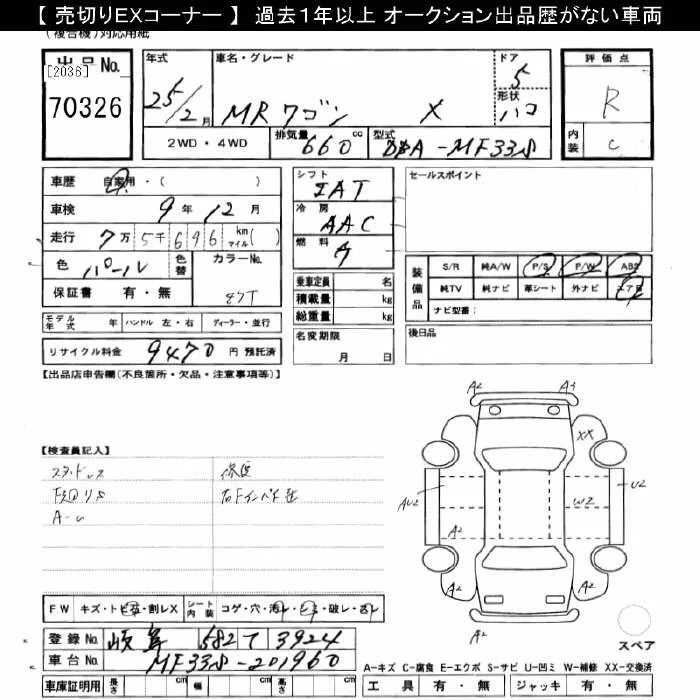 【 売切りEXコーナー 】 過去1年以上 オークション出品歴がない車両
(複合機)対応用紙
出品No.
[2036]
70326
年式
25/2月
車名・グレード
MRワゴン X
ドア
5
形状
ハコ
評価点
R
内装
C
2WD・4WD
排気量
660 cc
型式
DBA-MF33S
車歴 自家用・( )
車検 9年12月
走行 7万5千696 km マイル( )
色 パール
色替
カラーNo.
Z7T
保証書 有・無
シフト
IAT
冷房
AAC
燃料
乗車定員 名
積載量 kg
総重量 kg
名変期限
月 日
セールスポイント
装備品
S/R 純A/W P/S P/W ABS
純TV 純ナビ 革シート 外ナビ エアB
ナビ型番:
後日品
モデル年式 年 ハンドル 左・右 ディーラー・並行
リサイクル料金 9470 円 預託済
【出品店申告欄(不良箇所・欠品・注意事項等)】
【検査員記入】
スタッドレス
下廻りS
修復
A2 A1
XX
AU2 W2 U2
A2
A2 A2
A2
FW キズ・トビ石・割レX シート内装 コゲ・穴・汚レ・シミ・破レ・スレ
登録No. 岐阜 582 て 3924
車台No. MF33S-201960
車庫証明用 長さ cm 幅 cm 高さ cm
スペア
A-キズ C-腐食 E-エクボ S-サビ U-凹ミ W-補修 XX-交換済
工具 有・無 ジャッキ 有・無